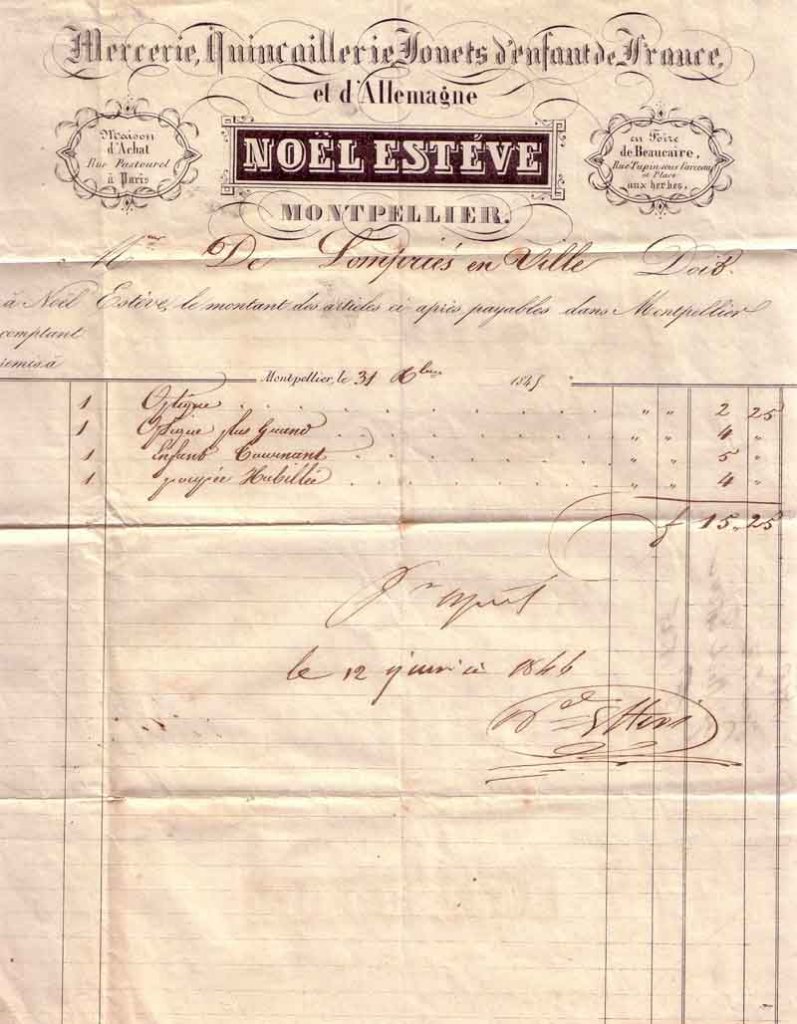 Mercerie, Quincaillerie Jouets d'enfant de France,
et d'Allemagne
Maison
d'Achat
Rue Pastourel
à Paris
NOËL ESTÉVE
en Foire
de Beaucaire,
Rue Tupin sous l'arceau
et Place
aux herbes.
MONTPELLIER.
Mr De en Ville Doit
à Noël Estève, le montant des articles ci après payables dans Montpellier
comptant
remis à
Montpellier, le 31 Xbre 1845
1 Optique 2 25
1 Optique plus Grand 4 "
1 Enfant Tournant 5 "
1 poupée Habillée 4 "
f 15.25
Pr acquit
le 12 janvier 1846
Noël Estève